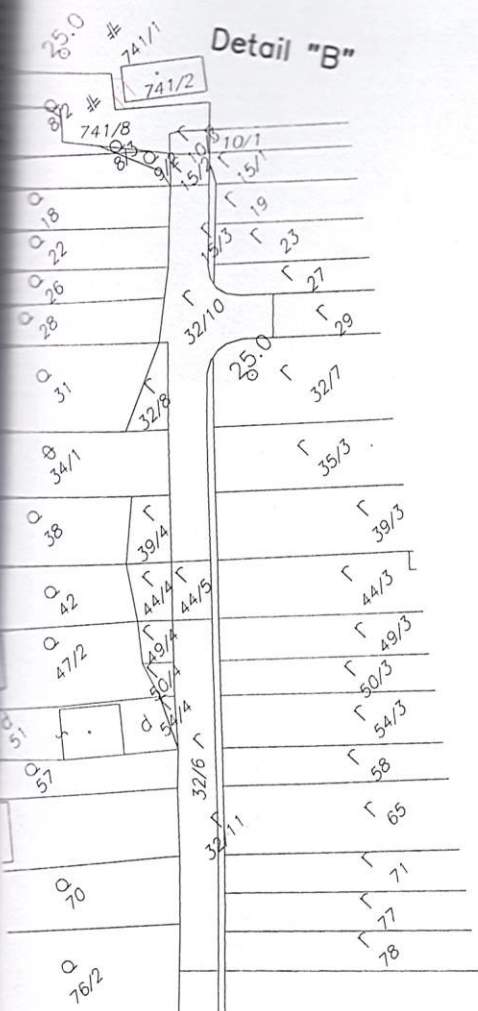 Detail "B"
25.0
741/1
741/2
8/2
741/8
8/3
9/
15/2
10/3
10/1
15/1
18
19
22
15/3
23
26
27
28
32/10
29
25.0
31
32/8
32/7
34/1
35/3
38
39/4
39/3
42
44/4
44/5
44/3
47/2
49/4
49/3
50/4
50/3
51
d
54/4
54/3
57
32/6
58
32/11
65
70
71
77
76/2
78